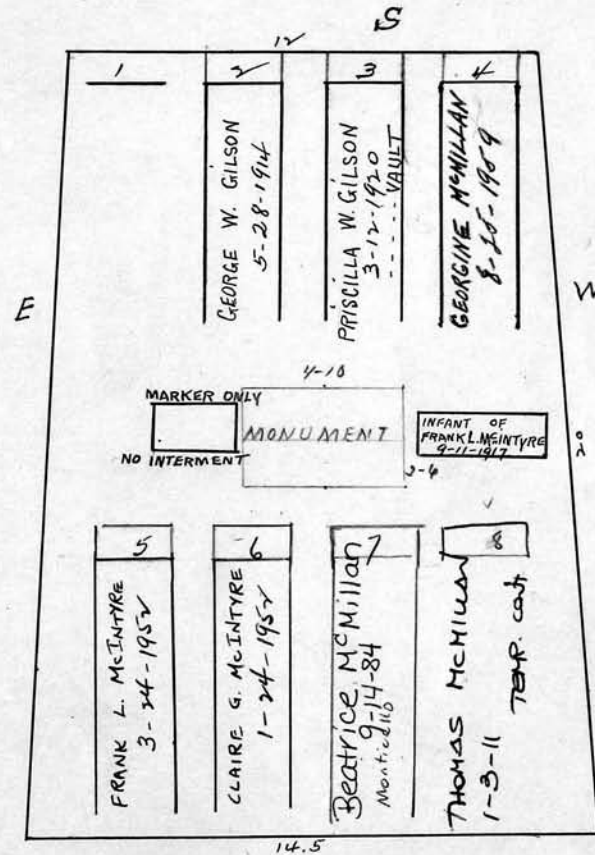 S
12
1
2
3
4
GEORGE W. GILSON
5-28-1914
PRISCILLA W. GILSON
3-12-1920
- - - - - VAULT
GEORGINE McMILLAN
8-25-1969
E
W
4-10
MARKER ONLY
NO INTERMENT
MONUMENT
2-6
INFANT OF
FRANK L. McINTYRE
9-11-1917
20
5
6
7
8
FRANK L. McINTYRE
3-24-1952
CLAIRE G. McINTYRE
1-24-1952
Beatrice McMillan
9-14-84
THOMAS McMILLAN
1-3-11
TEMP.
14.5